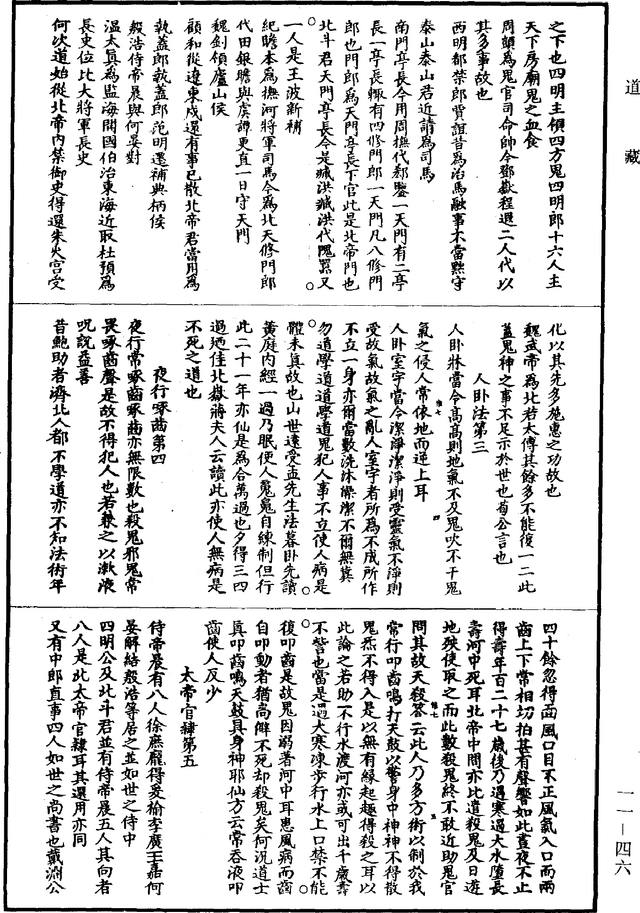 道藏
之下也四明主領四方鬼四明郎十六人主
天下房廟鬼之血食
周顗為鬼官司命帥令鄧嶽程遐二人代以
其多事故也
西明都禁郎賈誼昔為治馬融事不當黜守
泰山泰山君近請為司馬
南門亭長今用周撫代郗鑒一天門有二亭
長一亭長輒有四修門郎一天門凡八修門
郎也門郎為天門亭長下官此是北帝門也
北斗君天門亭長今是臧洪臧洪代隗囂又
一人是王波新補
紀瞻本為撫河將軍司馬今為北天修門郎
代田銀瞻與虞譚更直一日守天門
魏釗領廬山侯
顧和從遼東戍還有事已散北帝君當用為
執蓋郎執蓋郎范明遷補典柄侯
殷浩侍帝晨與何晏對
溫太真為監海開國伯治東海近取杜預為
長史位比大將軍長史
何次道始從北帝內禁御史得還朱火宮受
化以其先多施惠之功故也
魏武帝為北君太傅其餘多不能復一二此
蓋鬼神之事不足示於世也荀公言也
人臥法第三
人臥牀當令高高則地氣不及鬼吹不干鬼
氣之侵人常依地而逆上耳
人臥室宇當令潔淨潔淨則受靈氣不淨則
受故氣故氣之亂人室宇者所為不成所作
不立一身亦爾當數洗沐澡潔不爾無冀
勿道學道道學道鬼犯人事不立使人病是
體未真故也山世遠受孟先生法暮臥先讀
黃庭內經一過乃眠使人魂魄自練制但行
此二十一年亦仙是為合萬過也夕得三四
過迺佳北嶽蔣夫人云讀此亦使人無病是
不死之道也
夜行啄齒第四
夜行常啄齒啄齒亦無限數也殺鬼邪鬼常
畏啄齒聲是故不得犯人也若兼之以漱液
呪說益善
昔鮑助者濟北人都不學道亦不知法術年
四十餘忽得面風口目不正風氣入口而兩
齒上下常相切拍甚有聲響如此晝夜不止
得壽年百二十七歲後乃遇寒過大水墮長
壽河中死耳北帝中間亦比遣殺鬼及日遊
地殃使取之而此數殺鬼終不敢近助鬼官
問其故天殺答云此人乃多方術以制於我
常行叩齒鳴打天鼓以警身中神神不得散
鬼炁不得入是以無有緣趣得殺之耳以
此論之若助一不行水渡河亦或可出千歲壽
不啻也當是遇大寒凍步行水上口禁不能
復叩齒是故鬼因溺著河中耳患風病而齒
自叩動者猶尚倂不死却殺鬼矣何況道士
真叩齒鳴天鼓具身神耶仙方云常吞液叩
齒使人反少
太帝官隸第五
侍帝晨有八人徐庶龐得爰榆李廣王嘉何
晏解結殷浩等居之並如世之侍中
四明公及北斗君並有侍帝晨五人其向者
八人是北太帝官隸耳其選用亦同
又有中郎直事四人如世之尚書也戴淵公
一一—四六